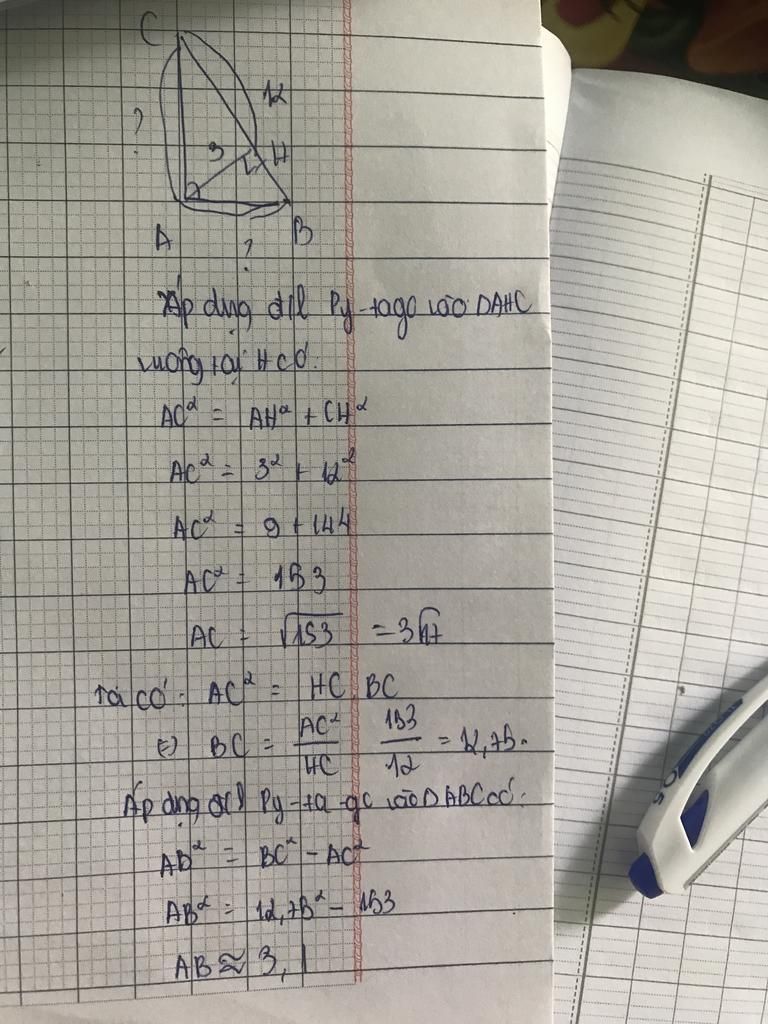 C
12
?
3
H
A
B
?
Áp dụng đ/l Py-tago vào ΔAHC
vuông tại H có:
AC² = AH² + CH²
AC² = 3² + 12²
AC² = 9 + 144
AC² = 153
AC = √153 = 3√17
Ta có: AC² = HC.BC
⇔ BC = AC²/HC 153/12 = 12,75.
Áp dụng đ/l Py-ta-go vào ΔABC có:
AB² = BC² - AC²
AB² = 12,75² - 153
AB ≈ 3,1